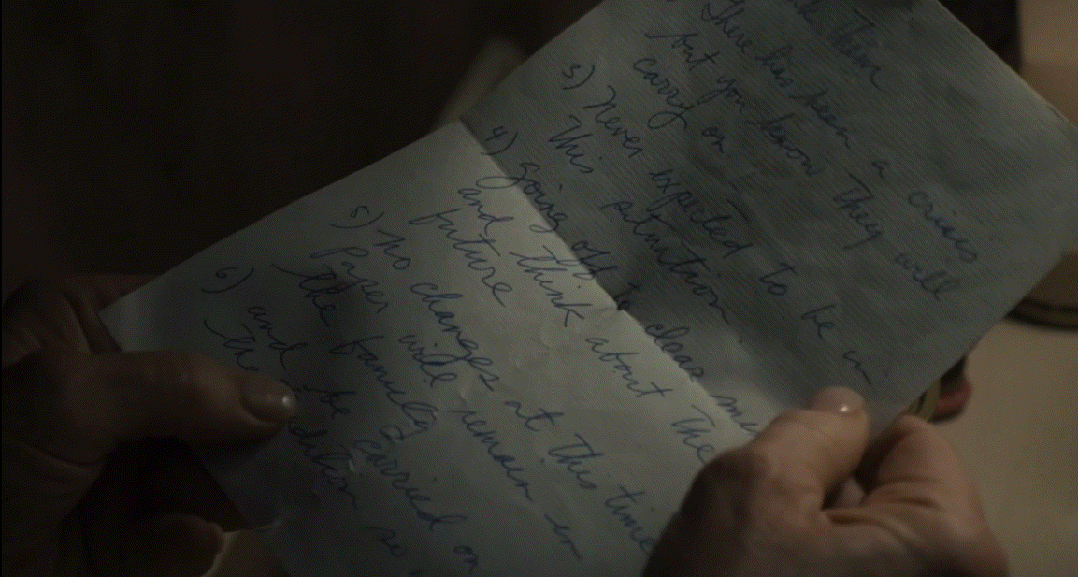 Them
There has been a crisis
but you know they will
carry on
3) Never expected to be in
This situation
4) going off to clear my
and think about The
future
5) no changes at This time
Paper will remain in
The family
6) and be carried on
so